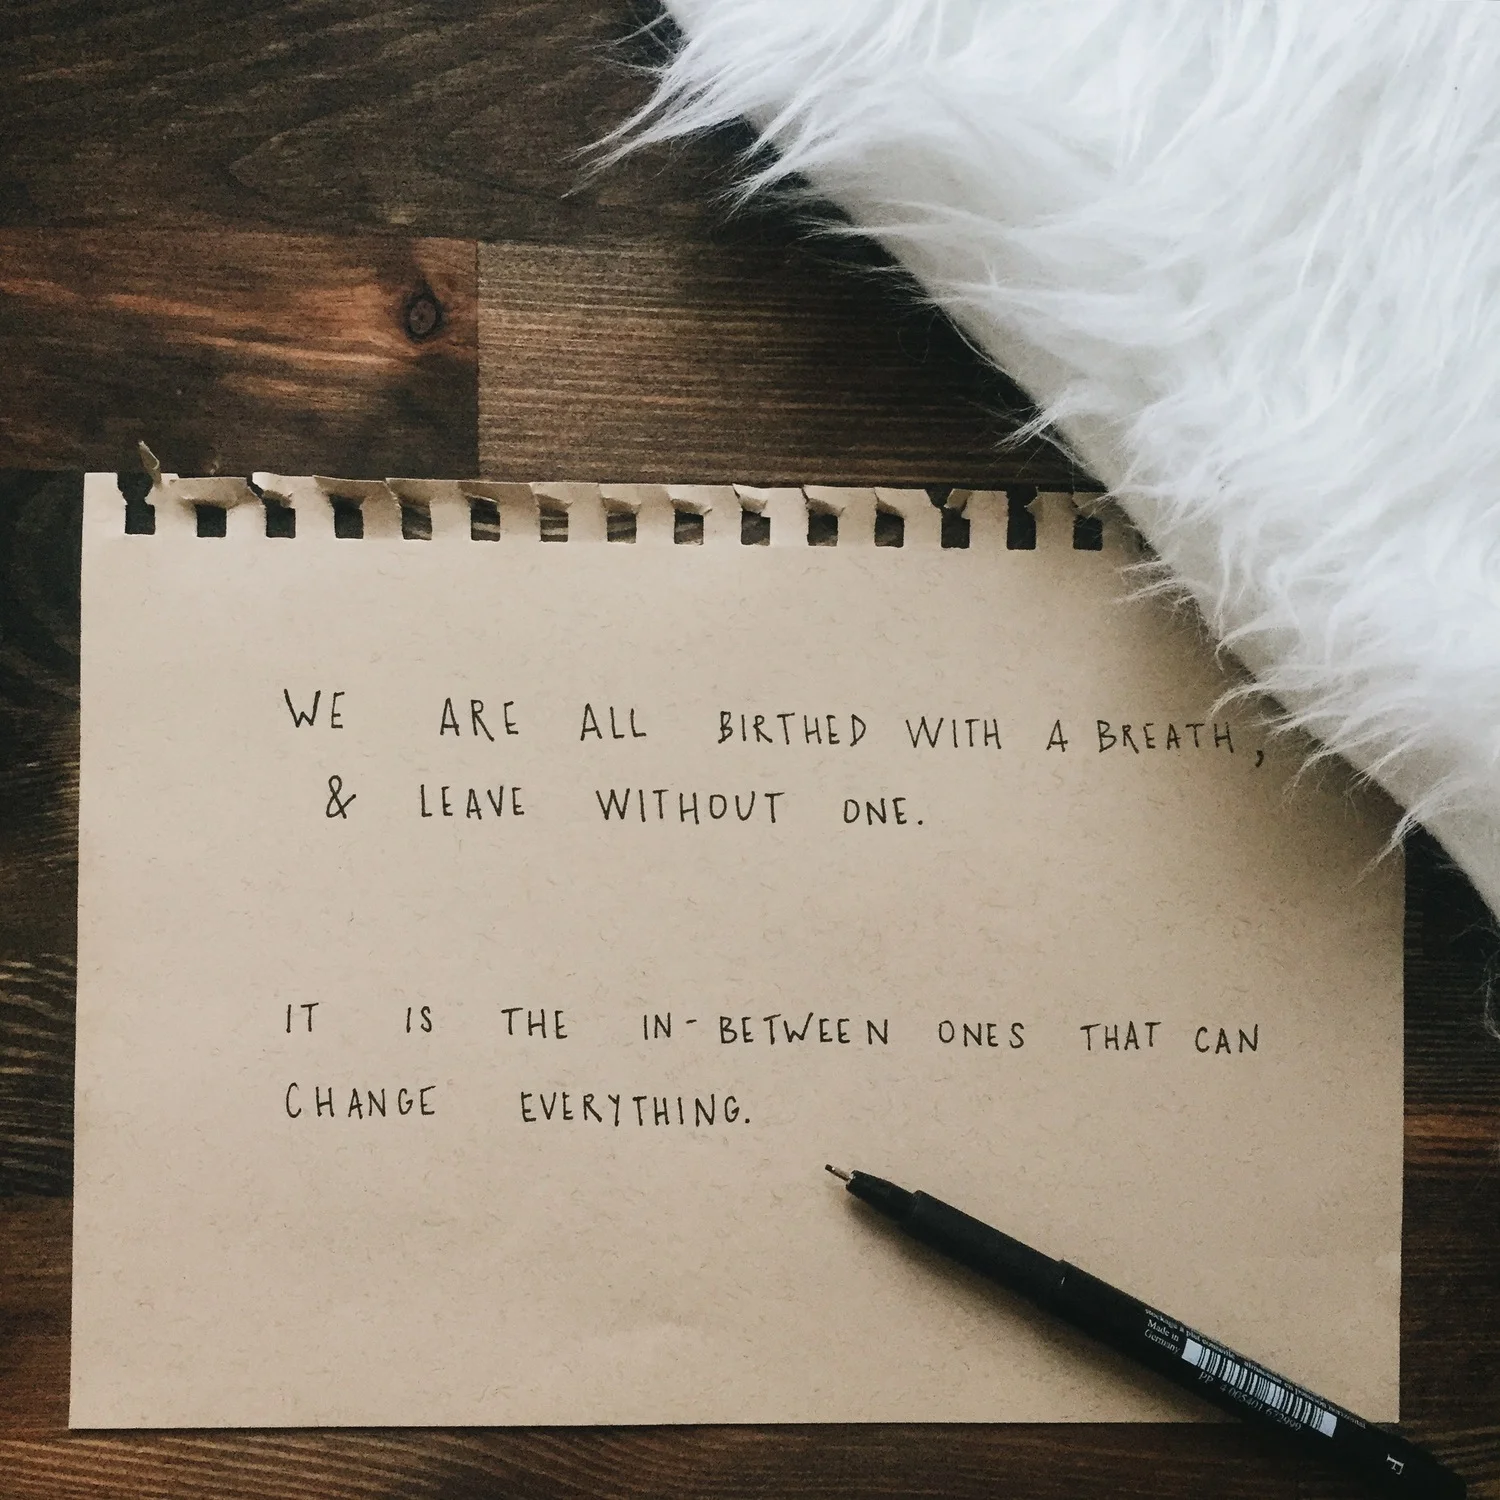 WE ARE ALL BIRTHED WITH A BREATH,
& LEAVE WITHOUT ONE.
IT IS THE IN-BETWEEN ONES THAT CAN
CHANGE EVERYTHING.
Made in
Germany
F